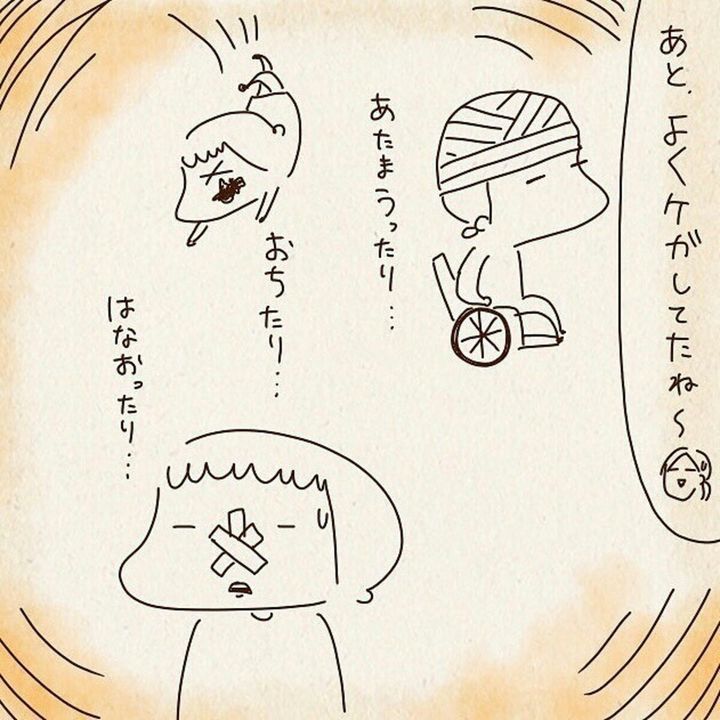 あと、よくケガしてたね～
あたまうったり…
おちたり…
はなおったり…